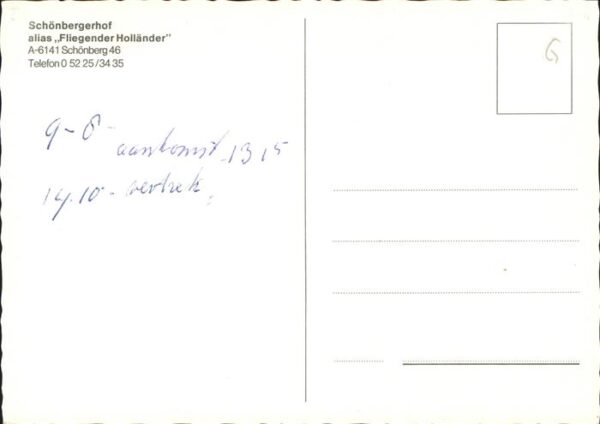 Schönbergerhof
alias „Fliegender Holländer"
A-6141 Schönberg 46
Telefon 0 52 25/34 35
G
9-8-
aankomst-13 15
14.10- vertrek.